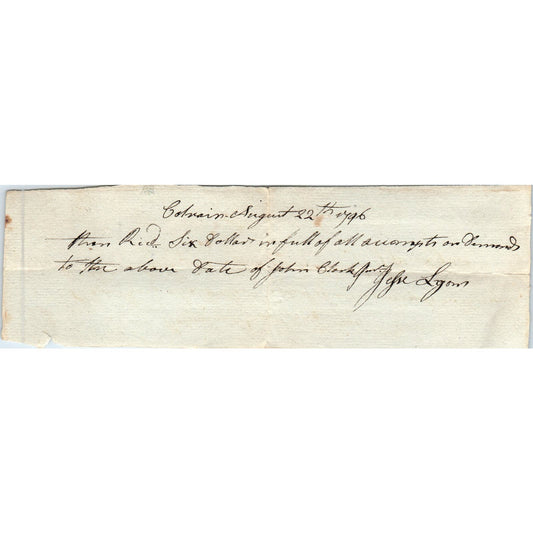 Colrain August 22th 1796
then Recd. Six Dollars in full of all accompts or Demands
to the above Date of John Clark Junr. Jesse Lyon